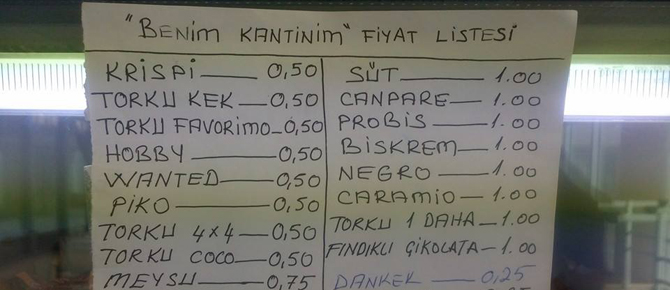 "BENİM KANTİNİM" FİYAT LİSTESİ
KRİSPİ — 0,50
TORKU KEK — 0,50
TORKU FAVORİMO — 0,50
HOBBY — 0,50
WANTED — 0,50
PİKO — 0,50
TORKU 4x4 — 0,50
TORKU COCO — 0,50
MEYSU — 0,75
SÜT — 1.00
CANPARE — 1.00
PROBİS — 1.00
BİSKREM — 1.00
NEGRO — 1.00
CARAMİO — 1.00
TORKU 1 DAHA — 1.00
FINDIKLI ÇİKOLATA — 1.00
DANKEK — 0,25